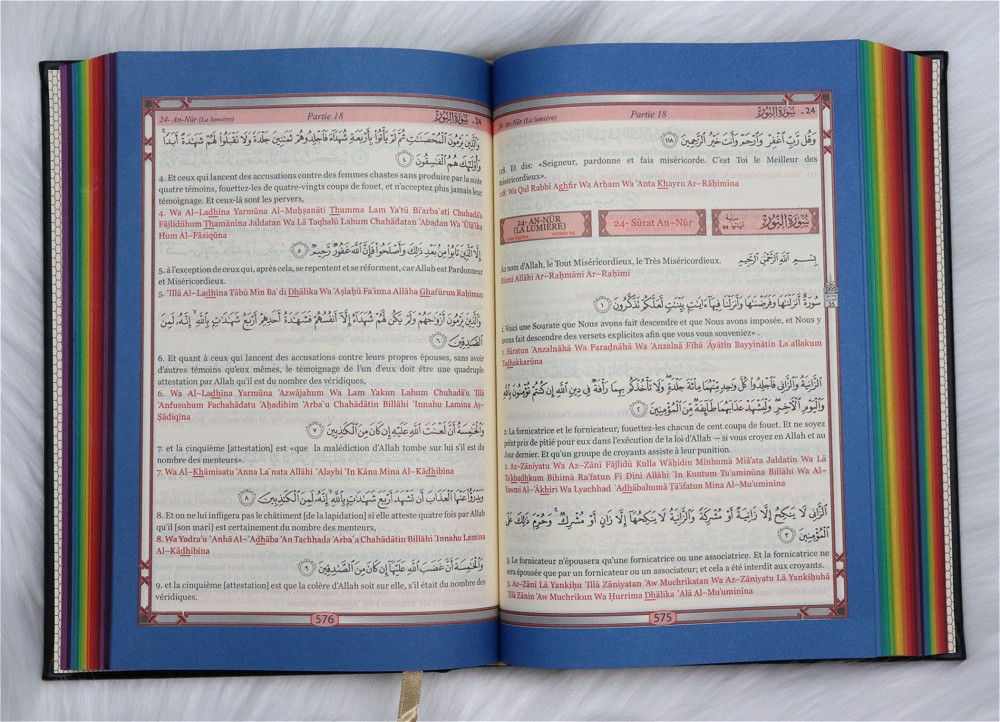 24- An-Nūr (La lumière) Partie 18 سُورَةُ النُّورِ - 24
وَقُل رَّبِّ ٱغْفِرْ وَٱرْحَمْ وَأَنتَ خَيْرُ ٱلرَّٰحِمِينَ ١١٨
118. Et dis: «Seigneur, pardonne et fais miséricorde. C'est Toi le Meilleur des
miséricordieux».
118. Wa Qul Rabbi Aghfir Wa Arḥam Wa 'Anta Khayru Ar-Rāḥimīna
24- AN-NŪR
(LA LUMIÈRE)
24- Sūrat An-Nūr
سُورَةُ النُّورِ
Au nom d'Allah, le Tout Miséricordieux, le Très Miséricordieux. بِسْمِ ٱللَّهِ ٱلرَّحْمَٰنِ ٱلرَّحِيمِ
Bismi Allāhi Ar-Raḥmāni Ar-Raḥīmi
سُورَةٌ أَنزَلْنَٰهَا وَفَرَضْنَٰهَا وَأَنزَلْنَا فِيهَآ ءَايَٰتٍۭ بَيِّنَٰتٍ لَّعَلَّكُمْ تَذَكَّرُونَ ١
1. Voici une Sourate que Nous avons fait descendre et que Nous avons imposée, et Nous y
avons fait descendre des versets explicites afin que vous vous souveniez» .
1. Sūratun 'Anzalnāhā Wa Faraḍnāhā Wa 'Anzalnā Fīhā 'Āyātin Bayyinātin La`allakum
Tadhakkarūna
ٱلزَّانِيَةُ وَٱلزَّانِى فَٱجْلِدُوا۟ كُلَّ وَٰحِدٍ مِّنْهُمَا مِا۟ئَةَ جَلْدَةٍ وَلَا تَأْخُذْكُم بِهِمَا رَأْفَةٌ فِى دِينِ ٱللَّهِ إِن كُنتُمْ تُؤْمِنُونَ بِٱللَّهِ
وَٱلْيَوْمِ ٱلْءَاخِرِ وَلْيَشْهَدْ عَذَابَهُمَا طَآئِفَةٌ مِّنَ ٱلْمُؤْمِنِينَ ٢
2. La fornicatrice et le fornicateur, fouettez-les chacun de cent coups de fouet. Et ne soyez
point pris de pitié pour eux dans l'exécution de la loi d'Allah – si vous croyez en Allah et au
Jour dernier. Et qu'un groupe de croyants assiste à leur punition.
2. Az-Zāniyatu Wa Az-Zānī Fājlidū Kulla Wāḥidin Minhumā Miā'ata Jaldatin Wa Lā
Ta'khudhkum Bihimā Ra'fatun Fī Dīni Allāhi 'In Kuntum Tu'uminūna Billāhi Wa Al-
Yawmi Al-'Ākhiri Wa Lyachhad `Adhābahumā Ṭā'ifatun Mina Al-Mu'uminīna
ٱلزَّانِى لَا يَنكِحُ إِلَّا زَانِيَةً أَوْ مُشْرِكَةً وَٱلزَّانِيَةُ لَا يَنكِحُهَآ إِلَّا زَانٍ أَوْ مُشْرِكٌ وَحُرِّمَ ذَٰلِكَ عَلَى
ٱلْمُؤْمِنِينَ ٣
3. Le fornicateur n'épousera qu'une fornicatrice ou une associatrice. Et la fornicatrice ne
sera épousée que par un fornicateur ou un associateur; et cela a été interdit aux croyants.
3. Az-Zānī Lā Yankiḥu 'Illā Zāniyatan 'Aw Muchrikatan Wa Az-Zāniyatu Lā Yankiḥuhā
'Illā Zānin 'Aw Muchrikun Wa Ḥurrima Dhālika `Alá Al-Mu'uminīna
575
24- An-Nūr (La lumière) Partie 18 سُورَةُ النُّورِ - 24
وَٱلَّذِينَ يَرْمُونَ ٱلْمُحْصَنَٰتِ ثُمَّ لَمْ يَأْتُوا۟ بِأَرْبَعَةِ شُهَدَآءَ فَٱجْلِدُوهُمْ ثَمَٰنِينَ جَلْدَةً وَلَا تَقْبَلُوا۟ لَهُمْ شَهَٰدَةً أَبَدًا
وَأُو۟لَٰٓئِكَ هُمُ ٱلْفَٰسِقُونَ ٤
4. Et ceux qui lancent des accusations contre des femmes chastes sans produire par la suite
quatre témoins, fouettez-les de quatre-vingts coups de fouet, et n'acceptez plus jamais leur
témoignage. Et ceux-là sont les pervers,
4. Wa Al-Ladhīna Yarmūna Al-Muḥşanāti Thumma Lam Ya'tū Bi'arba`ati Chuhadā'a
Fājlidūhum Thamānīna Jaldatan Wa Lā Taqbalū Lahum Chahādatan 'Abadan Wa 'Ūlā'ika
Hum Al-Fāsiqūna
إِلَّا ٱلَّذِينَ تَابُوا۟ مِنۢ بَعْدِ ذَٰلِكَ وَأَصْلَحُوا۟ فَإِنَّ ٱللَّهَ غَفُورٌ رَّحِيمٌ ٥
5. à l'exception de ceux qui, après cela, se repentent et se réforment, car Allah est Pardonneur
et Miséricordieux.
5. 'Illā Al-Ladhīna Tābū Min Ba`di Dhālika Wa 'Aşlaḥū Fa'inna Allāha Ghafūrun Raḥīmun
وَٱلَّذِينَ يَرْمُونَ أَزْوَٰجَهُمْ وَلَمْ يَكُن لَّهُمْ شُهَدَآءُ إِلَّآ أَنفُسُهُمْ فَشَهَٰدَةُ أَحَدِهِمْ أَرْبَعُ شَهَٰدَٰتٍۭ بِٱللَّهِ إِنَّهُۥ لَمِنَ
ٱلصَّٰدِقِينَ ٦
6. Et quant à ceux qui lancent des accusations contre leurs propres épouses, sans avoir
d'autres témoins qu'eux mêmes, le témoignage de l'un d'eux doit être une quadruple
attestation par Allah qu'il est du nombre des véridiques,
6. Wa Al-Ladhīna Yarmūna 'Azwājahum Wa Lam Yakun Lahum Chuhadā'u 'Illā
'Anfusuhum Fachahādatu 'Aḥadihim 'Arba`u Chahādātin Billāhi 'Innahu Lamina Aş-
Şādiqīna
وَٱلْخَٰمِسَةُ أَنَّ لَعْنَتَ ٱللَّهِ عَلَيْهِ إِن كَانَ مِنَ ٱلْكَٰذِبِينَ ٧
7. et la cinquième [attestation] est «que la malédiction d'Allah tombe sur lui s'il est du
nombre des menteurs».
7. Wa Al-Khāmisatu 'Anna La`nata Allāhi `Alayhi 'In Kāna Mina Al-Kādhibīna
وَيَدْرَؤُا۟ عَنْهَا ٱلْعَذَابَ أَن تَشْهَدَ أَرْبَعَ شَهَٰدَٰتٍۭ بِٱللَّهِ إِنَّهُۥ لَمِنَ ٱلْكَٰذِبِينَ ٨
8. Et on ne lui infligera pas le châtiment [de la lapidation] si elle atteste quatre fois par Allah
qu'il [son mari] est certainement du nombre des menteurs,
8. Wa Yadra'u `Anhā Al-`Adhāba 'An Tachhada 'Arba`a Chahādātin Billāhi 'Innahu Lamina
Al-Kādhibīna
وَٱلْخَٰمِسَةَ أَنَّ غَضَبَ ٱللَّهِ عَلَيْهَآ إِن كَانَ مِنَ ٱلصَّٰدِقِينَ ٩
9. et la cinquième [attestation] est que la colère d'Allah soit sur elle, s'il était du nombre des
véridiques.
576